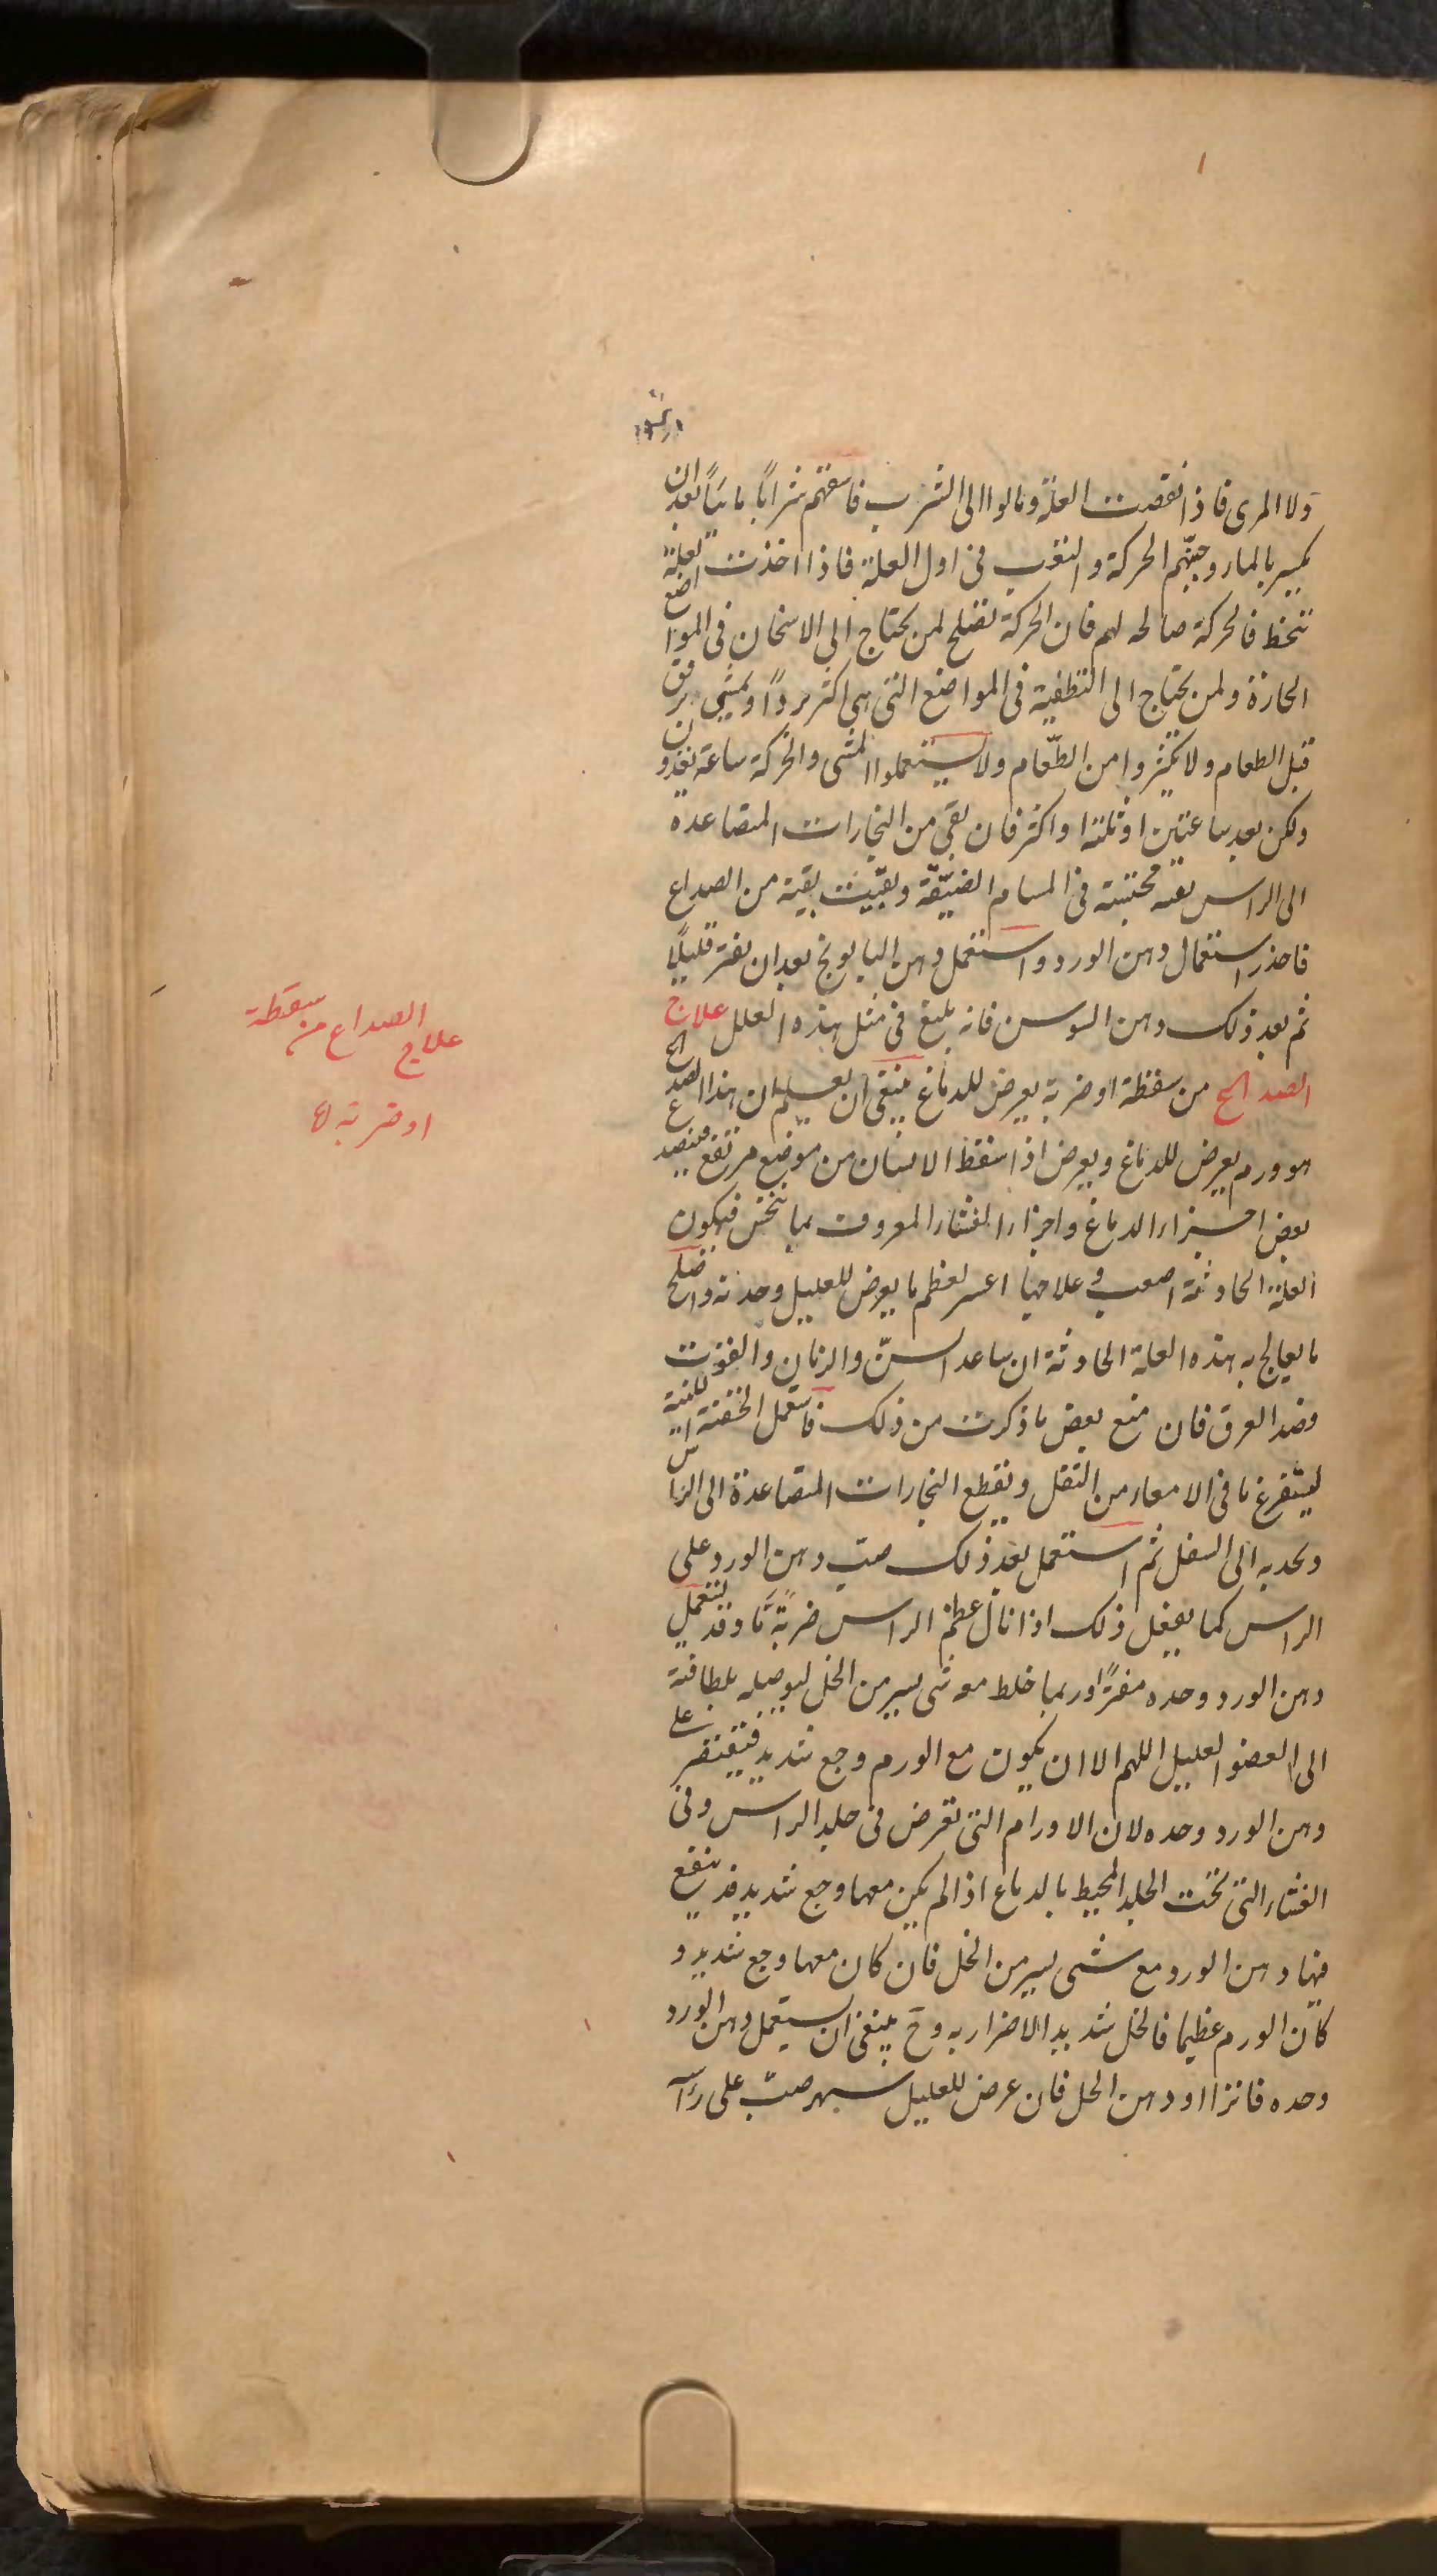 ولا المرى فاذا نقصت العلة ومالوا الى الشرب فاسقهم شرابًا مائيًا بعد ان
يكسر بالماء وجنّبهم الحركة والتعب فى اول العلة فاذا اخذت العلة
تنحط فالحركة صالحه لهم فان الحركة تصلح لمن يحتاج الى الاسخان فى المواضع
الحارة ولمن يحتاج الى التطفية فى المواضع التى هى اكثر بردًا ويمشى برفق
قبل الطعام ولا يكثروا من الطّعام ولا يستعملوا المشى والحركة ساعة يغذون
ولكن بعد ساعتين او ثلثة او اكثر فان بقى من البخارات المتصاعده
الى الراس بقيه محتبسة فى المسام الضيّقة وبقيت بقية من الصداع
فاحذر استعمال دهن الورد واستعمل دهن البابونج بعد ان يفتر قليلًا
ثم بعد ذلك دهن السوسن فانه بليغ فى مثل هذه العلل علاج
الصداع من سقطة او ضربة يعرض للدماغ ينبغى ان يعلم ان هذا الصداع
هو ورم يعرض للدماغ ويعرض اذا سقط الانسان من موضع مرتفع فيتصد
بعض اجزاء الدماغ واجزاء الغشاء المعروف بمانخس فيكون
العلة الحادثة اصعب وعلاجها اعسر لعظم ما يعرض للعليل وحدته واصلح
ما يعالج به هذه العلة الحادثة ان ساعد السنّ والزمان والقوت
فصد العرق فان منع بعض ما ذكرت من ذلك فاستعمل الحقنة اللينة
ليستفرغ ما فى الامعاء من الثقل ويقطع البخارات المتصاعدة الى الراس
ويحدبه الى السفل ثم استعمل بعد ذلك صبّ دهن الورد على
الراس كما يفعل ذلك اذا نال عظم الراس ضربةً ما وقد يستعمل
دهن الورد وحده مفترًا وربما خلط معه شى يسير من الخل ليوصله بلطافته
الى العضو العليل اللهم الا ان يكون مع الورم وجع شديد فيقتصر على
دهن الورد وحده لان الاورام التى تعرض فى جلد الراس وفى
الغشاء التى تحت الجلد المحيط بالدماغ اذا لم يكن معها وجع شديد قد ينفع
فيها دهن الورد مع شى يسير من الخل فان كان معها وجع شديد و
كان الورم عظيما فالخل شديد الاضرار به وح ينبغى ان يستعمل دهن الورد
وحده فاترا او دهن الحل فان عرض للعليل سهر صبّ على را
علاج الصداع من سقطة
او ضربة